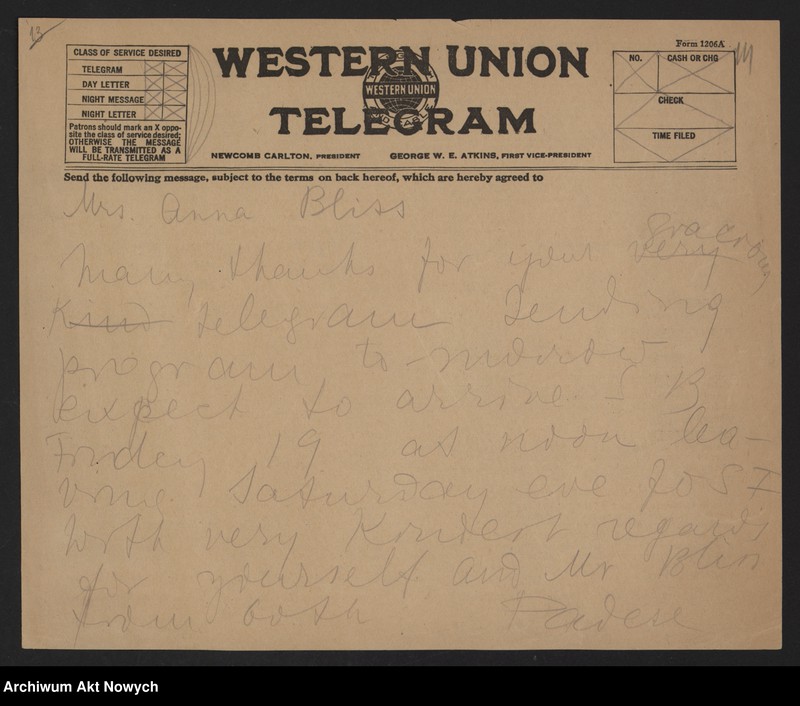 13
14
Form 1206A
CLASS OF SERVICE DESIRED
TELEGRAM
DAY LETTER
NIGHT MESSAGE
NIGHT LETTER
Patrons should mark an X oppo-
site the class of service desired;
OTHERWISE THE MESSAGE
WILL BE TRANSMITTED AS A
FULL-RATE TELEGRAM
WESTERN UNION
WESTERN UNION
TELEGRAM
NEWCOMB CARLTON, PRESIDENT
GEORGE W. E. ATKINS, FIRST VICE-PRESIDENT
NO.
CASH OR CHG
CHECK
TIME FILED
Send the following message, subject to the terms on back hereof, which are hereby agreed to
Mrs. Anna Bliss
gracious
Many thanks for your very
kind telegram sending
program to-morrow
expect to arrive S B
Friday 19 at noon lea-
ving Saturday eve for S F
With very kindest regards
for yourself and Mr Bliss
from both Padere
Archiwum Akt Nowych